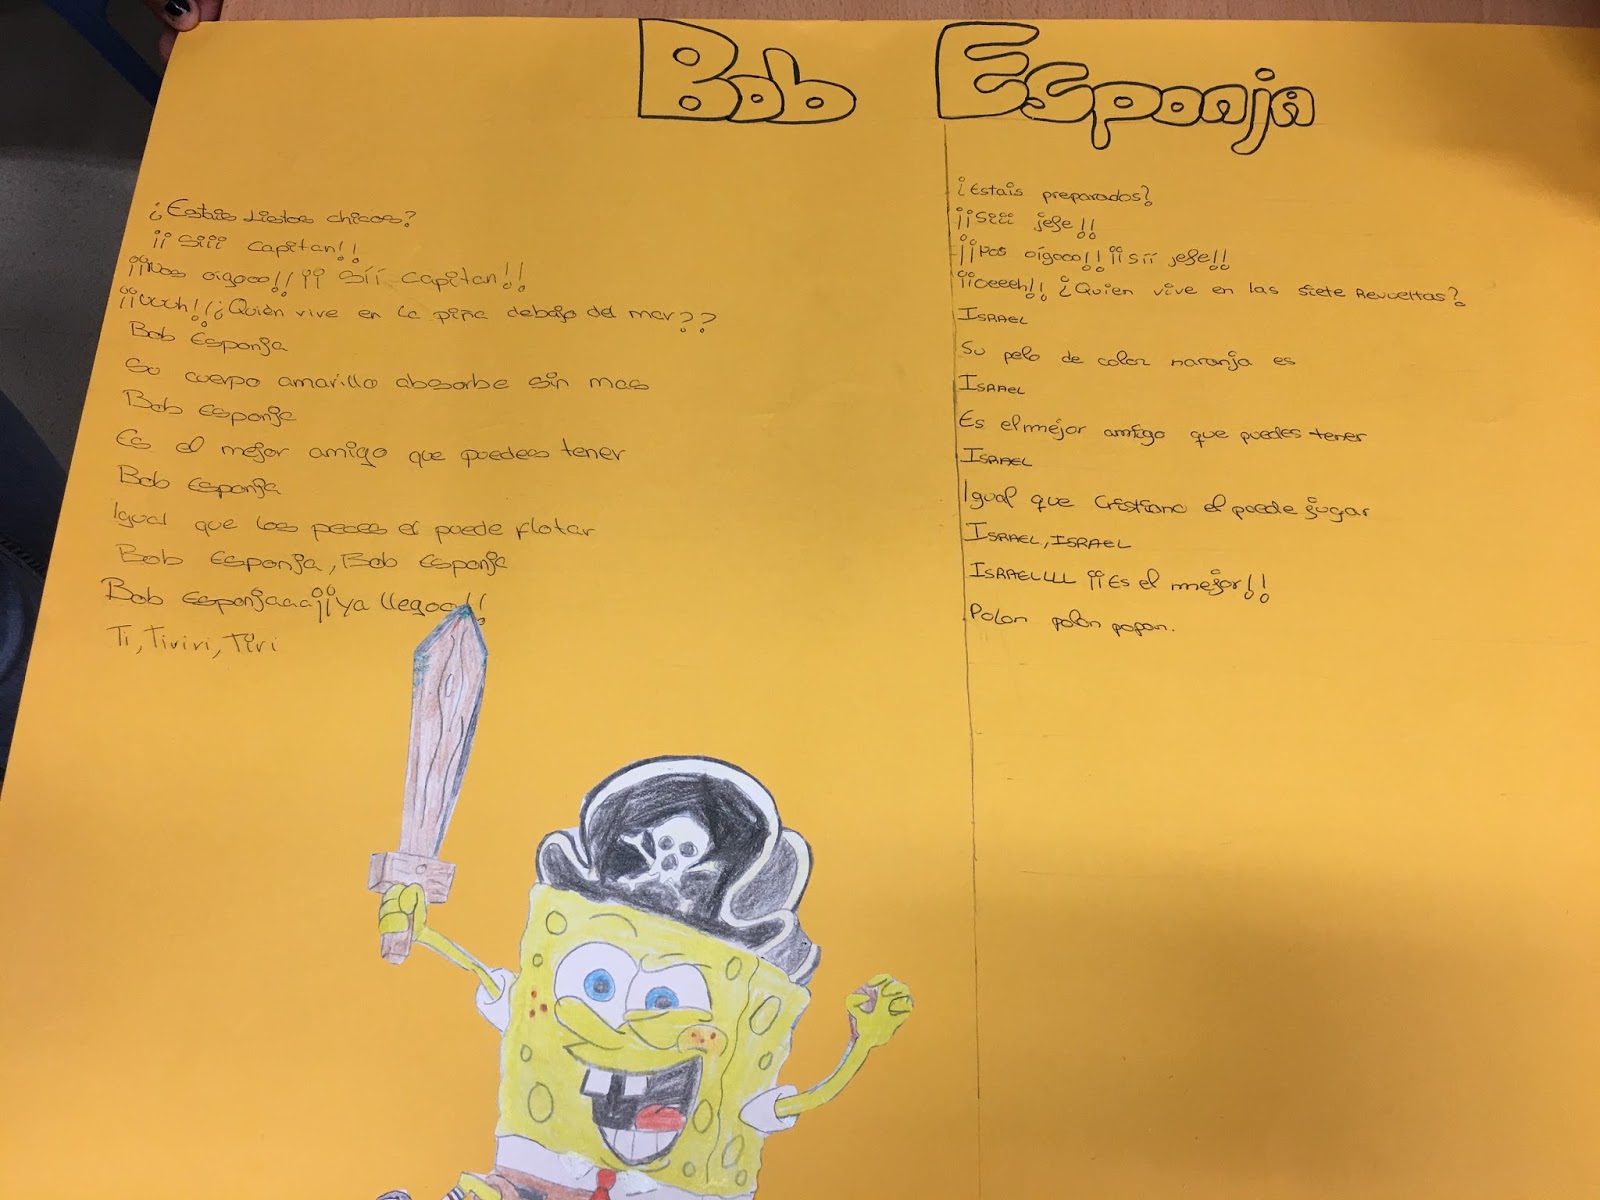 Bob Esponja
¿Estais Listos chicos?
¡¡Siii capitan!!
¡¡¡Nos oigooo!! ¡¡ Síí capitan!!
¡¡¡Uuuh!! ¿¿Quién vive en la piña debajo del mar??
Bob Esponja
Su cuerpo amarillo absorbe sin mas
Bob Esponja
Es el mejor amigo que puedes tener
Bob Esponja
Igual que los peces el puede flotar
Bob Esponja, Bob Esponja
Bob Esponjaaa ¡¡ya llegoo!!
Ti, Tiviri, Tiri
¿Estais preparados?
¡¡Siii jefe!!
¡¡¡Nos oígooo!! ¡¡Síí jefe!!
¡¡Oeeeh!! ¿Quien vive en las Siete Revueltas?
ISRAEL
Su pelo de color naranja es
ISRAEL
Es el mejor amigo que puedes tener
ISRAEL
Igual que Cristiano el puede jugar
ISRAEL, ISRAEL
ISRAELLLL ¡¡Es el mejor!!
Polon polon popon.